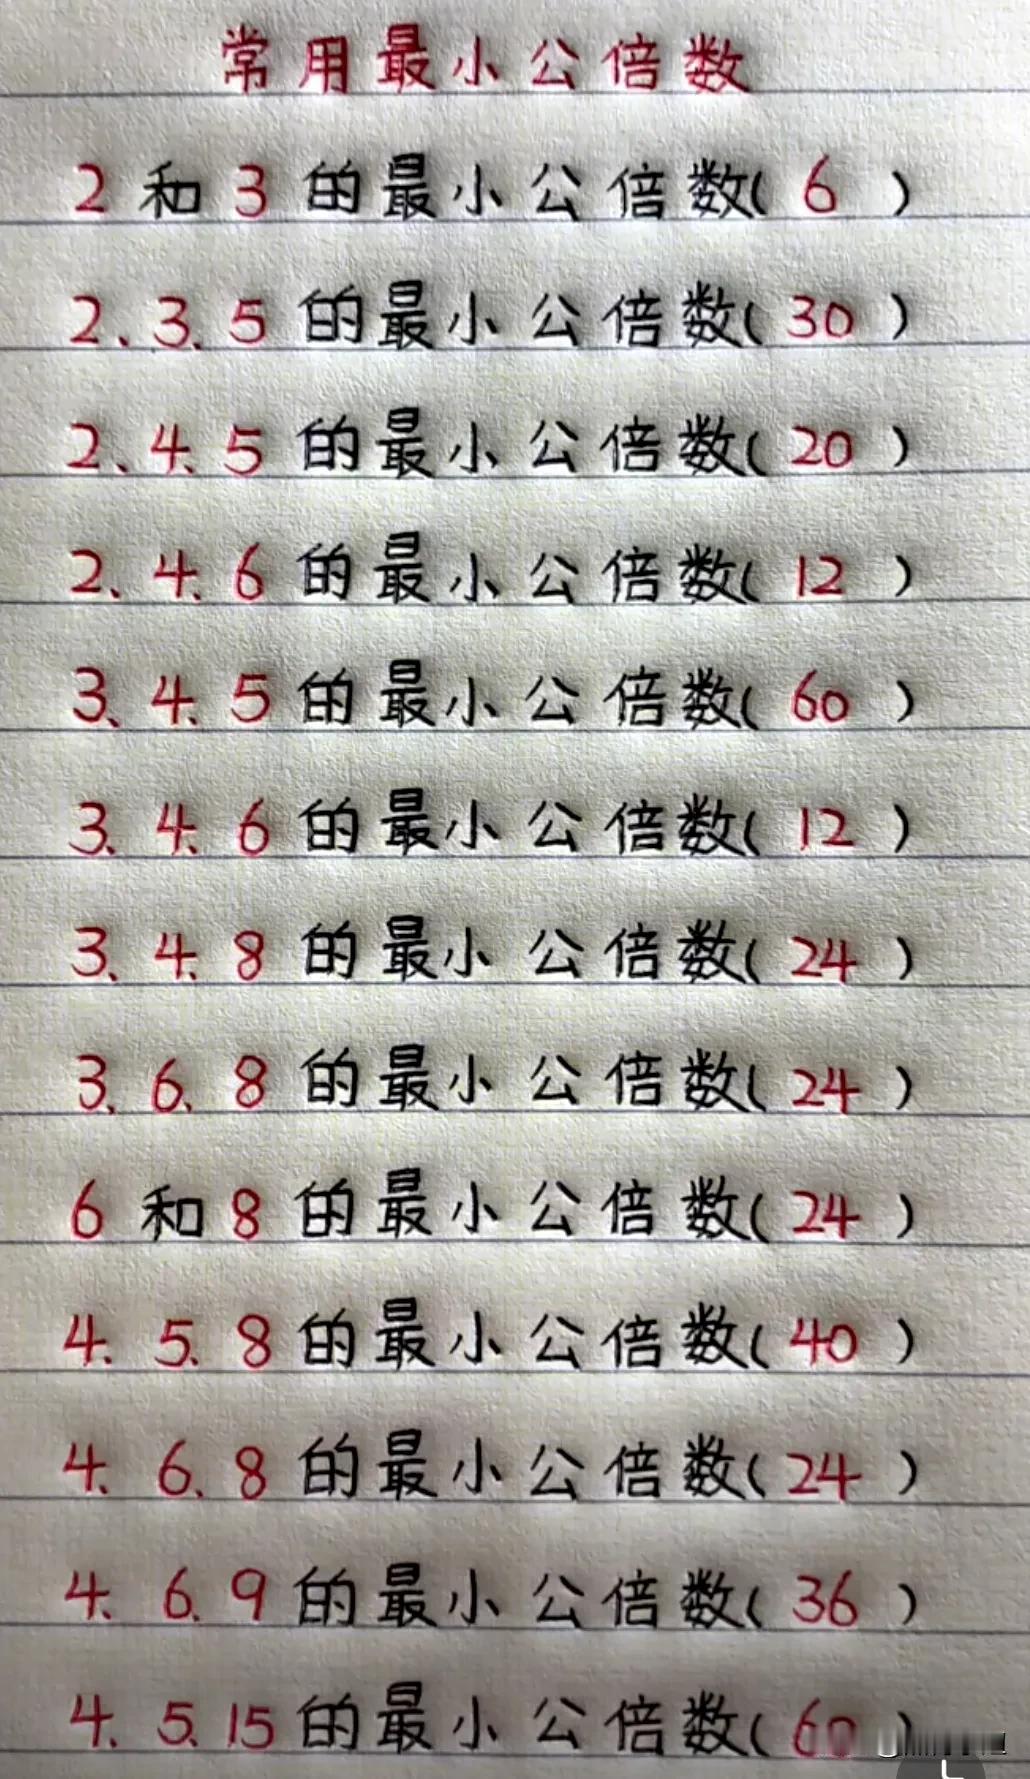 常用最小公倍数
2和3的最小公倍数(6)
2、3、5的最小公倍数(30)
2、4、5的最小公倍数(20)
2、4、6的最小公倍数(12)
3、4、5的最小公倍数(60)
3、4、6的最小公倍数(12)
3、4、8的最小公倍数(24)
3、6、8的最小公倍数(24)
6和8的最小公倍数(24)
4、5、8的最小公倍数(40)
4、6、8的最小公倍数(24)
4、6、9的最小公倍数(36)
4、5、15的最小公倍数(60)